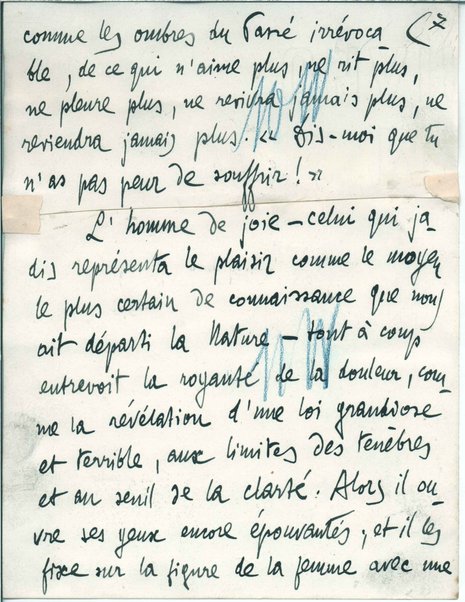 comme les ombres du Passé irrévoca (7
ble, de ce qui n'aime plus, ne rit plus,
ne pleure plus, ne revivra jamais plus, ne
reviendra jamais plus. « Dis-moi que tu
n'as pas peur de souffrir ! »
L'homme de joie – celui qui ja-
dis représenta le plaisir comme le moyen
le plus certain de connaissance que nous
ait départi la Nature – tout à coup
entrevoit la royauté de la douleur, com-
me la révélation d'une loi grandiose
et terrible, aux limites des ténèbres
et au seuil de la clarté. Alors il ou-
vre ses yeux encore épouvantés, et il les
fixe sur la figure de la femme avec une